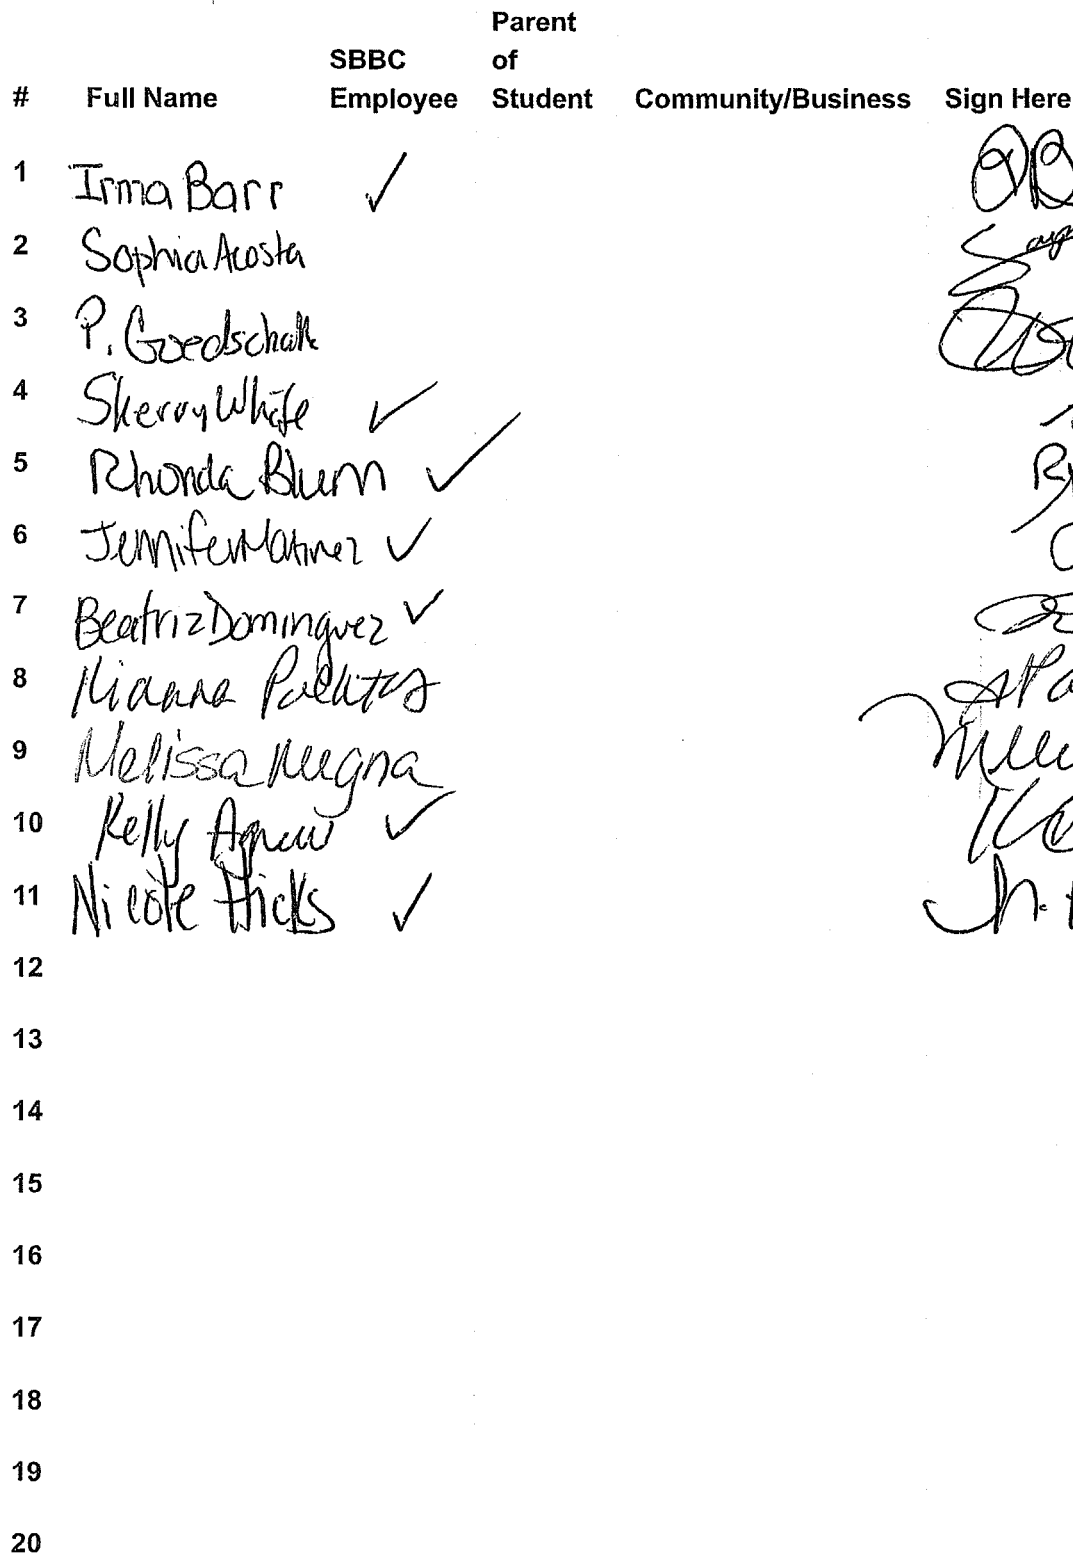 Parent
SBBC of
# Full Name Employee Student Community/Business Sign Here
1 Irma Barr ✓
2 Sophia Acosta
3 P. Goedschalk
4 Skerry White ✓
5 Rhonda Blum ✓
6 Jennifer Matinez ✓
7 Beatriz Dominguez ✓
8
9 Melissa Mugna
10 Kelly Agnew ✓
11 Nicole Hicks ✓
12
13
14
15
16
17
18
19
20